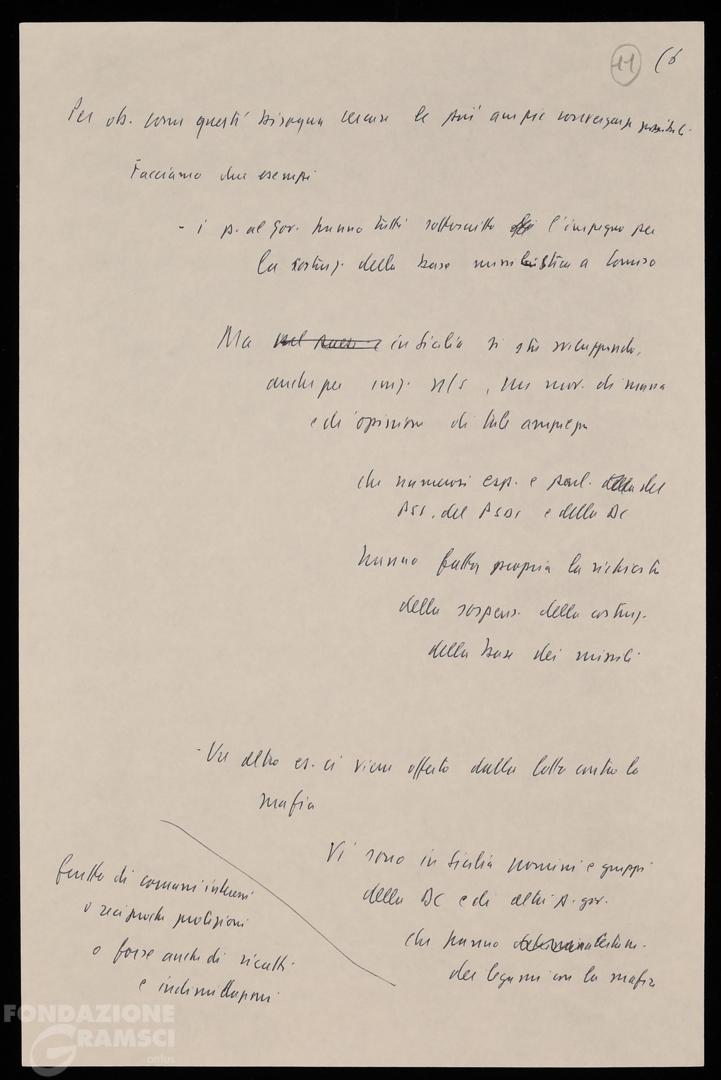 11 (6
Per ob. come questi bisogna cercare le più ampie convergenze possibili.
Facciamo due esempi
- i p. al gov. hanno tutti sottoscritto l'impegno per
la costruz. della base missilistica a Comiso
Ma in Sicilia si sta sviluppando,
anche per , un mov. di massa
e di opinione di tale ampiezza
che numerosi esp. e parl. del
PSI, del PSDI e della DC
hanno fatto propria la richiesta
della sospens. della costruz.
della base dei missili
- Un altro es. ci viene offerto dalla lotta contro la
mafia
Vi sono in Sicilia uomini e gruppi
della DC e di altri p. gov.
che hanno
dei legami con la mafia
frutto di comuni interessi
o reciproche protezioni
o forse anche di ricatti
e intimidazioni
FONDAZIONE
GRAMSCI
onlus